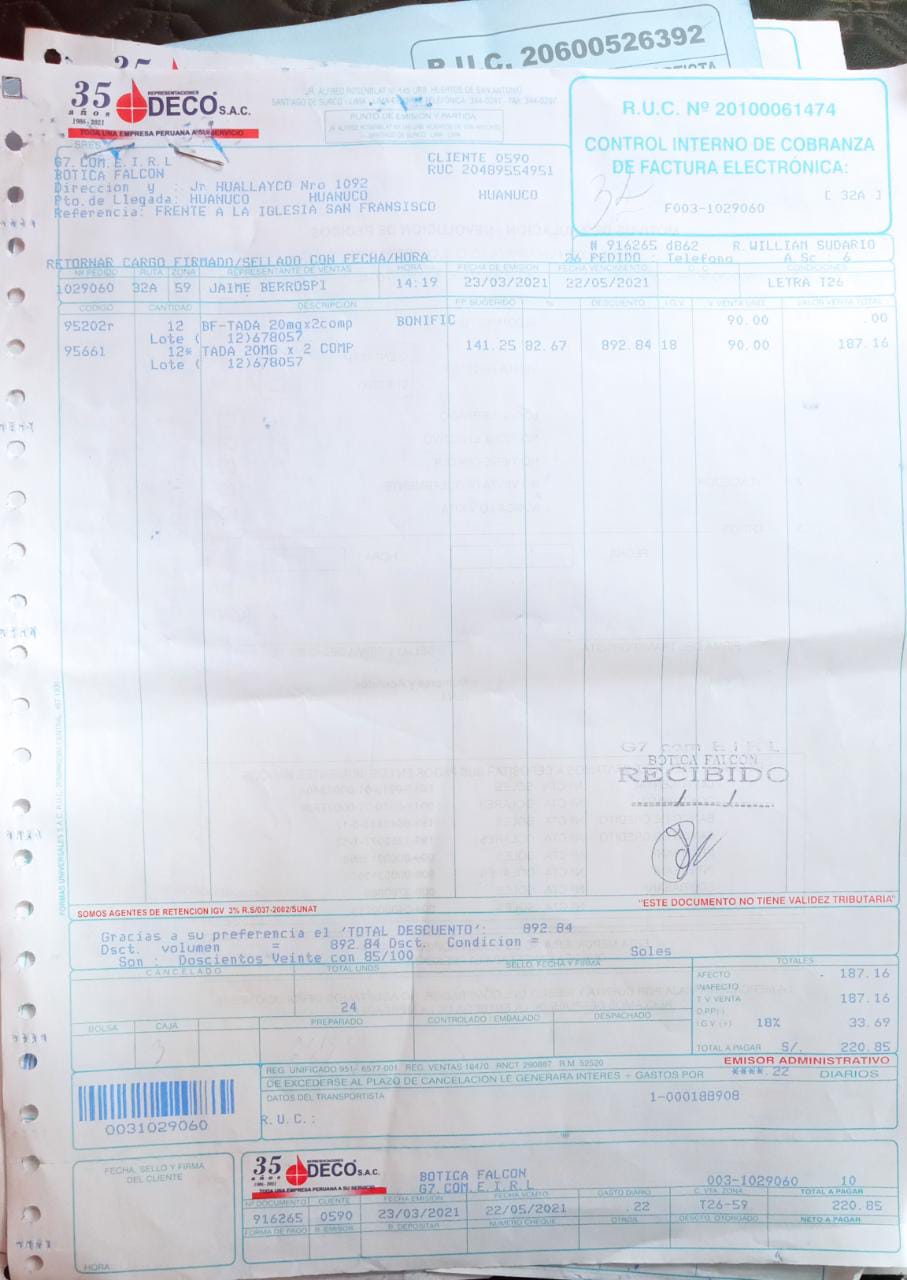 R.U.C. 20600526392
35
años
1986 - 2021
REPRESENTACIONES
DECO S.A.C.
TODA UNA EMPRESA PERUANA A SU SERVICIO
JR. ALFREDO ROSENBLAT Nº 145 URB. HUERTOS DE SAN ANTONIO
SANTIAGO DE SURCO - LIMA - LIMA TELEFONICA: 344-0291 - FAX: 344-0297
PUNTO DE EMISIÓN Y PARTIDA
R.U.C. Nº 20100061474
CONTROL INTERNO DE COBRANZA
DE FACTURA ELECTRÓNICA:
[ 32A ]
F003-1029060
SRES
G7 COM.E.I.R.L
CLIENTE 0590
BOTICA FALCON
RUC 20489554951
Direccion y : Jr HUALLAYCO Nro 1092
Pto.de Llegada: HUANUCO HUANUCO HUANUCO
Referencia: FRENTE A LA IGLESIA SAN FRANSISCO
# 916265 d862 R.WILLIAM SUDARIO
RETORNAR CARGO FIRMADO/SELLADO CON FECHA/HORA
26 PEDIDO : Telefono A.Sc : 6
Nº PEDIDO RUTA ZONA REPRESENTANTE DE VENTAS HORA FECHA DE EMISION FECHA VENCIMIENTO O.C. CONDICIONES
1029060 32A 59 JAIME BERROSPI 14:19 23/03/2021 22/05/2021 LETRA T26
CODIGO CANTIDAD DESCRIPCION P.P. SUGERIDO % DESCUENTO I.G.V. V. VENTA UNIT. VALOR VENTA TOTAL
95202r 12 BF-TADA 20mgx2comp BONIFIC 90.00 .00
Lote ( 12)678057
95661 12* TADA 20MG x 2 COMP 141.25 82.67 892.84 18 90.00 187.16
Lote ( 12)678057
G7 com E I R L
BOTICA FALCON
RECIBIDO
SOMOS AGENTES DE RETENCION IGV 3% R.S/037-2002/SUNAT
"ESTE DOCUMENTO NO TIENE VALIDEZ TRIBUTARIA"
Gracias a su preferencia el 'TOTAL DESCUENTO': 892.84
Dsct. volumen = 892.84 Dsct. Condicion =
Son : Doscientos Veinte con 85/100 Soles
CANCELADO
TOTAL UNDS
24
SELLO, FECHA Y FIRMA
BOLSA CAJA PREPARADO CONTROLADO / EMBALADO DESPACHADO
3
TOTALES
AFECTO 187.16
INAFECTO
T V VENTA 187.16
D.PP(-)
I.G.V. (+) 18% 33.69
TOTAL A PAGAR S/. 220.85
EMISOR ADMINISTRATIVO
REG. UNIFICADO 951- 6577-001 REG. VENTAS 16470 RNCT 290887 R.M. 52520
DE EXCEDERSE AL PLAZO DE CANCELACION LE GENERARA INTERES + GASTOS POR ****.22 DIARIOS
DATOS DEL TRANSPORTISTA
1-000188908
R.U.C.:
0031029060
FECHA, SELLO Y FIRMA
DEL CLIENTE
HORA:
35
años
1986 - 2021
REPRESENTACIONES
DECO S.A.C.
TODA UNA EMPRESA PERUANA A SU SERVICIO
BOTICA FALCON
G7 COM.E.I.R.L
003-1029060 10
Nº DOCUMENTO CLIENTE FECHA EMISION FECHA VCMTO GASTO DIARIO C. VTA. ZONA TOTAL A PAGAR
916265 0590 23/03/2021 22/05/2021 .22 T26-59 220.85
FORMA DE PAGO B. EMISOR B. DEPOSITAR NUMERO CHEQUE OTROS DESCTO. OTORGADO NETO A PAGAR